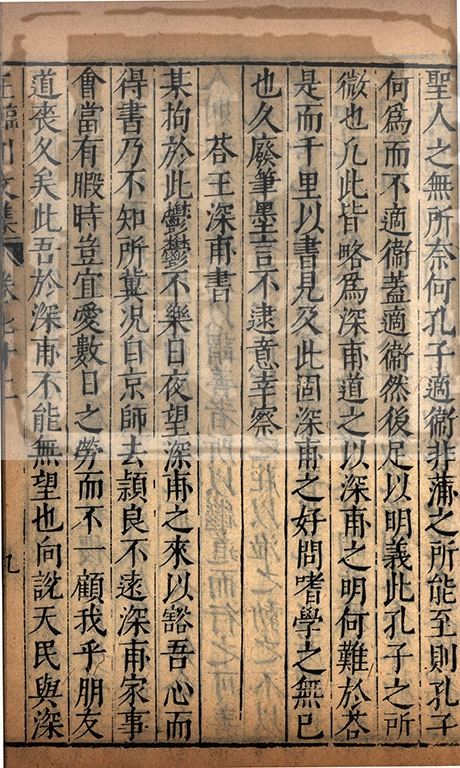 聖人之無所奈何孔子適衞非蒲之所能至則孔子
何爲而不適衞蓋適衞然後足以明義此孔子之所
微也凡此皆略爲深甫道之以深甫之明何難於荅
是而千里以書見及此固深甫之好問嗜學之無已
也久廢筆墨言不逮意幸察
荅王深甫書
某拘於此鬱鬱不樂日夜望深甫之來以豁吾心而
得書乃不知所冀况自京師去頴良不遠深甫家事
會當有暇時豈宜愛數日之勞而不一顧我乎朋友
道喪久矣此吾於深甫不能無望也向說天民與深
王臨川文集 卷七十二 九